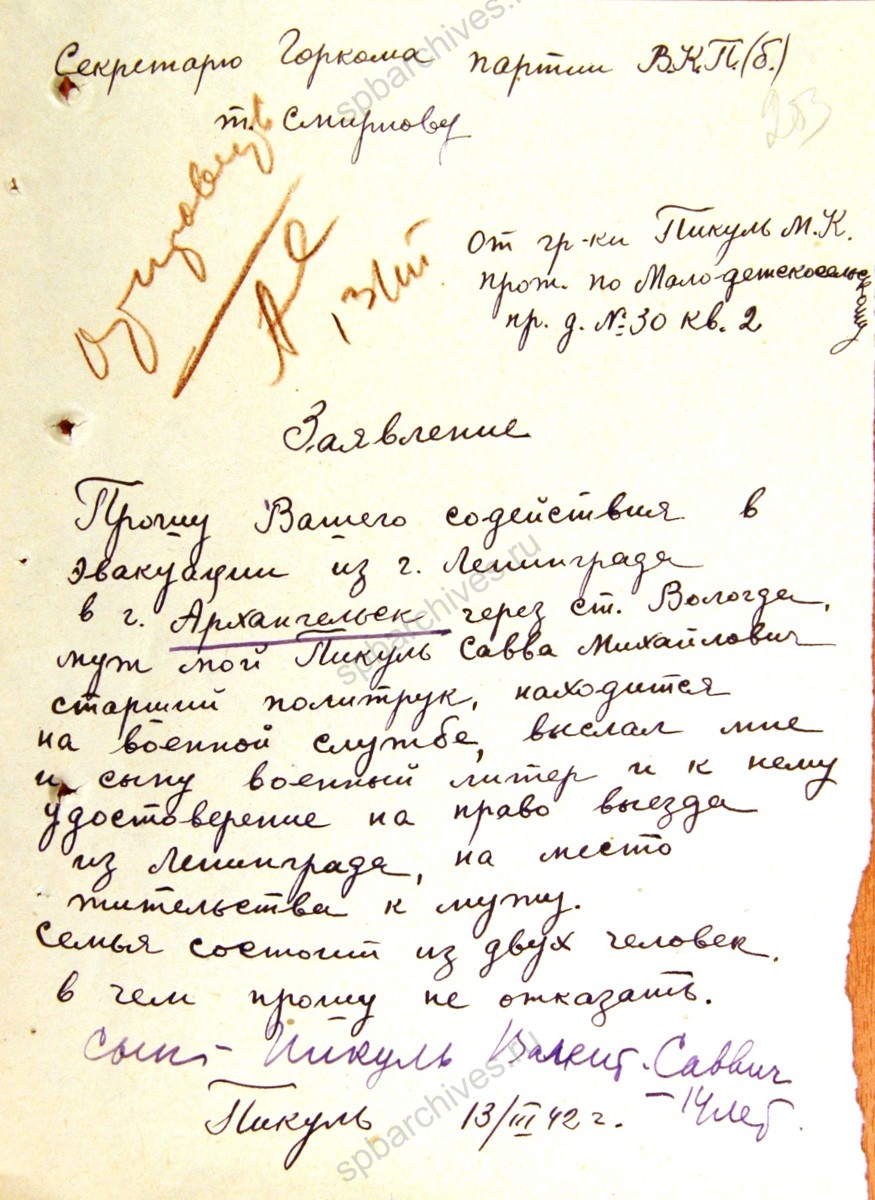 Секретарю Горкома партии В.К.П.(б.)
т. Смирнову
253
От гр-ки Пикуль М.К.
прож. по Мало-детскосельскому
пр. д. № 30 кв. 2
13/III
Заявление
Прошу Вашего содействия в
эвакуации из г. Ленинграда
в г. Архангельск через ст. Вологда,
муж мой Пикуль Савва Михайлович
старший политрук, находится
на военной службе, выслал мне
и сыну военный литер и к нему
удостоверение на право выезда
из Ленинграда, на место
жительства к мужу.
семья состоит из двух человек.
в чем прошу не отказать.
сын - Пикуль Валент. Саввич
- 14 лет.
Пикуль 13/III 42 г.
spbarchives.ru
spbarchives.ru
spbarchives.ru